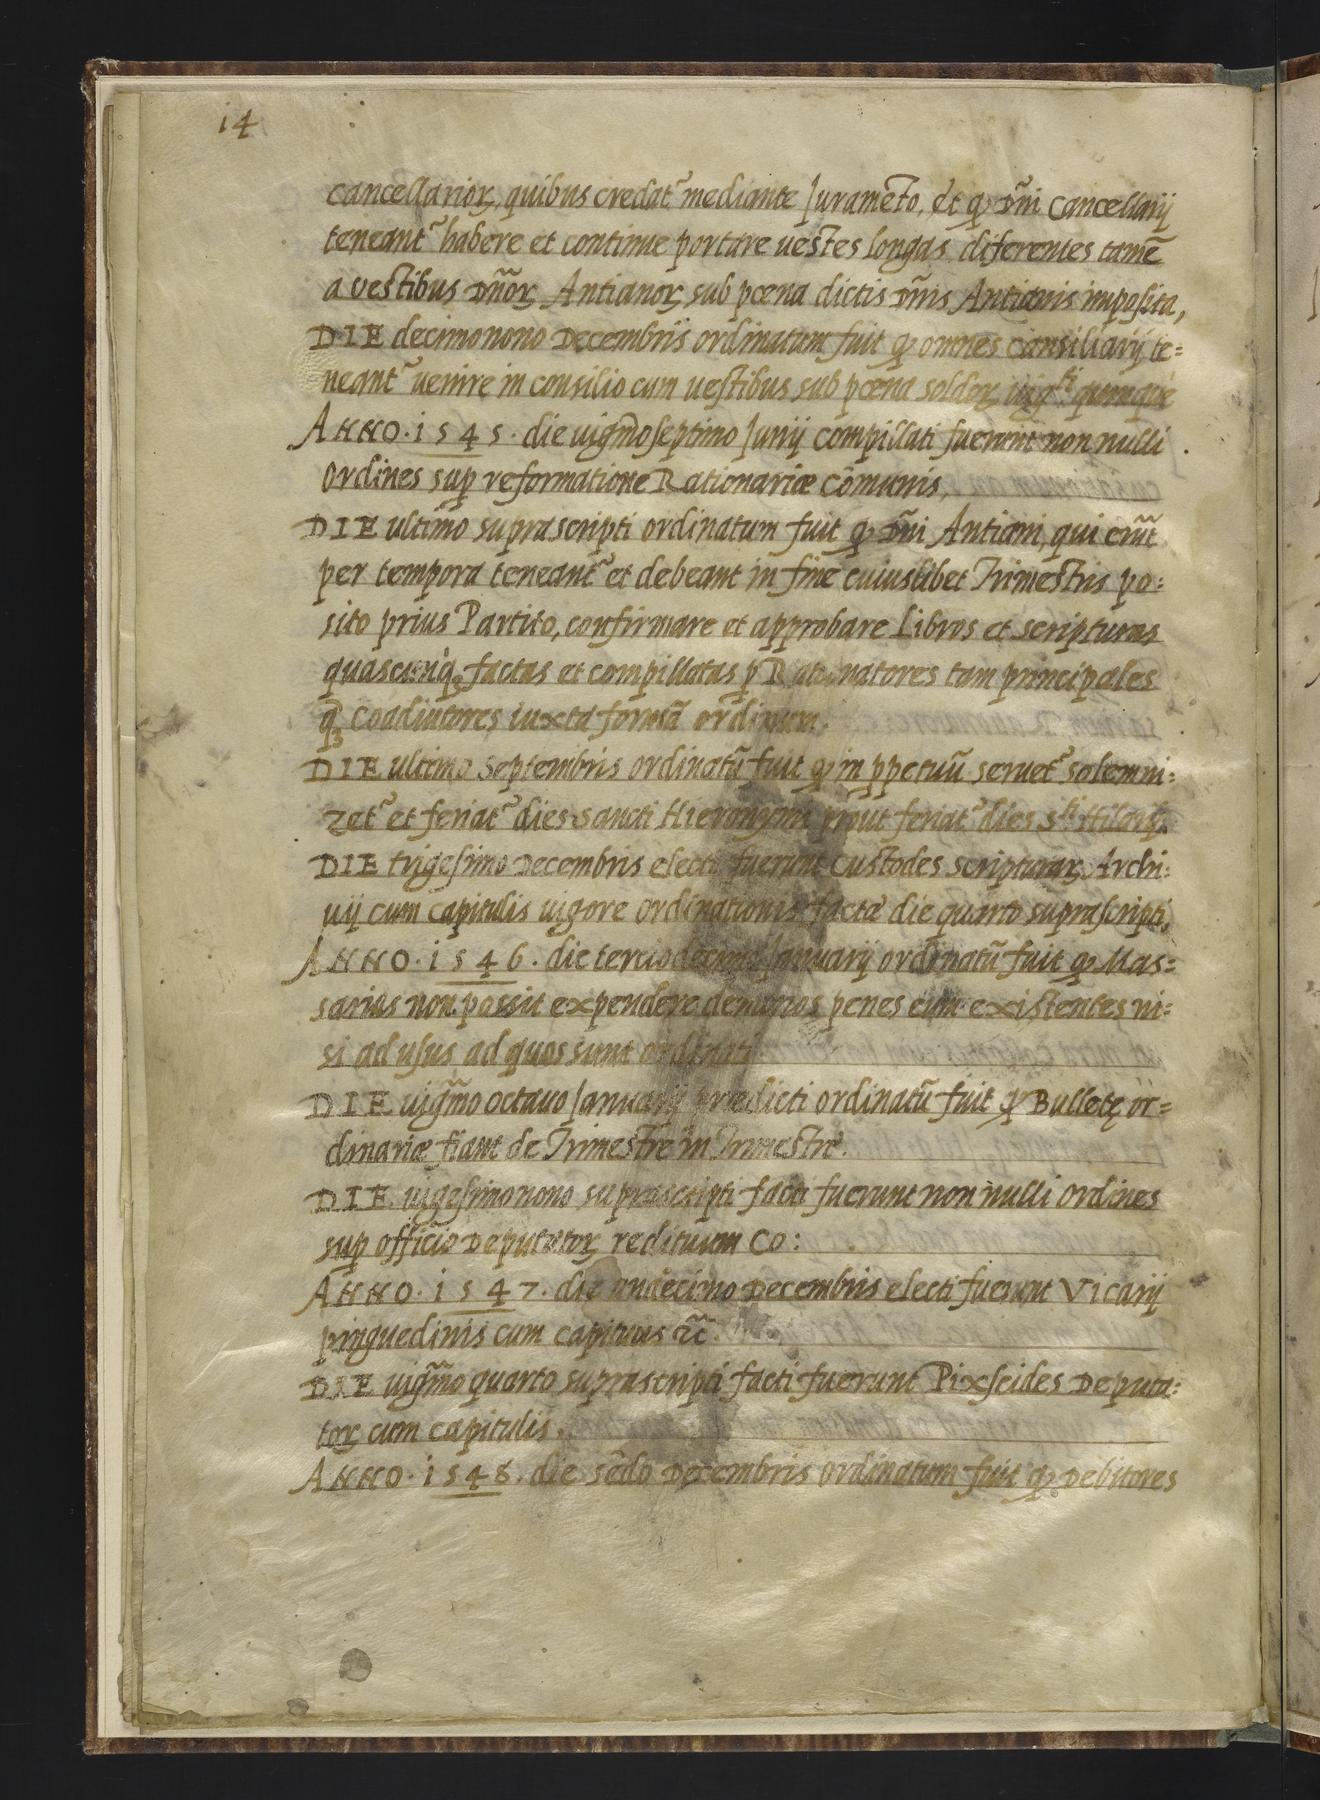 14
cancellarioꝝ, quibus credat᷑ mediante Juramēto, et ꝙ Dn̄i Cancellarij
teneant᷑ habere et continue portare uestes longas diferentes tamē
a vestibus Dn̄oꝝ Antianoꝝ sub pœna dictis Dn̄is Antianis imposita,
DIE decimonono Decembris ordinatum fuit ꝙ omnes consiliarij te=
neant᷑ uenire in consilio cum uestibus sub pœna soldoꝝ uigᵗⁱ quinque
ANNO · 1545 · die uigm̄oseptimo Junij compillati fuerunt non nulli
ordines suꝑ reformatione Rationariæ Cōmunis,
DIE ultimo suprascripti ordinatum fuit ꝙ Dn̄i Antiani, qui erūt
per tempora teneant᷑ et debeant in fine cuiuslibet Trimestris po=
sito prius Partito, confirmare et approbare Libros et scripturas
quascunqꝫ factas et compillatas ꝑ Rationatores tam principales
qꝫ Coadiutores iuxta formā ordinum.
DIE ultimo Septembris ordinatū fuit ꝙ in ꝑpetuū seruet᷑ solemni=
zet᷑ et feriat᷑ dies Sancti Hieronymi prout feriat᷑ dies Sᵗⁱ Hilarij.
DIE trigesimo Decembris electi fuerunt Custodes scripturaꝝ Archi=
uij cum capitulis uigore ordinationis factæ die quarto suprascripti,
ANNO · 1546 · die terciodecimo Januarij ordinatū fuit ꝙ Mas=
sarius non possit expendere denarios penes eum existentes ni=
si ad usus ad quos sunt ordinati
DIE uigm̄o octauo Januarij prædicti ordinatū fuit ꝙ Bulletę or=
dinariæ fiant de Trimestre in Trimestre.
DIE uigesimonono suprascripti facti fuerunt non nulli ordines
suꝑ officio Deputatoꝝ redituum Co:
ANNO · 1547 · die undecimo Decembris electi fuerunt Vicarij
pinguedinis cum capitulis &c̄.
DIE uigm̄o quarto suprascripti facti fuerunt Pixscides Deputa=
toꝝ cum capitulis.
ANNO · 1548 · die sēdo Decembris ordinatum fuit ꝙ Debitores